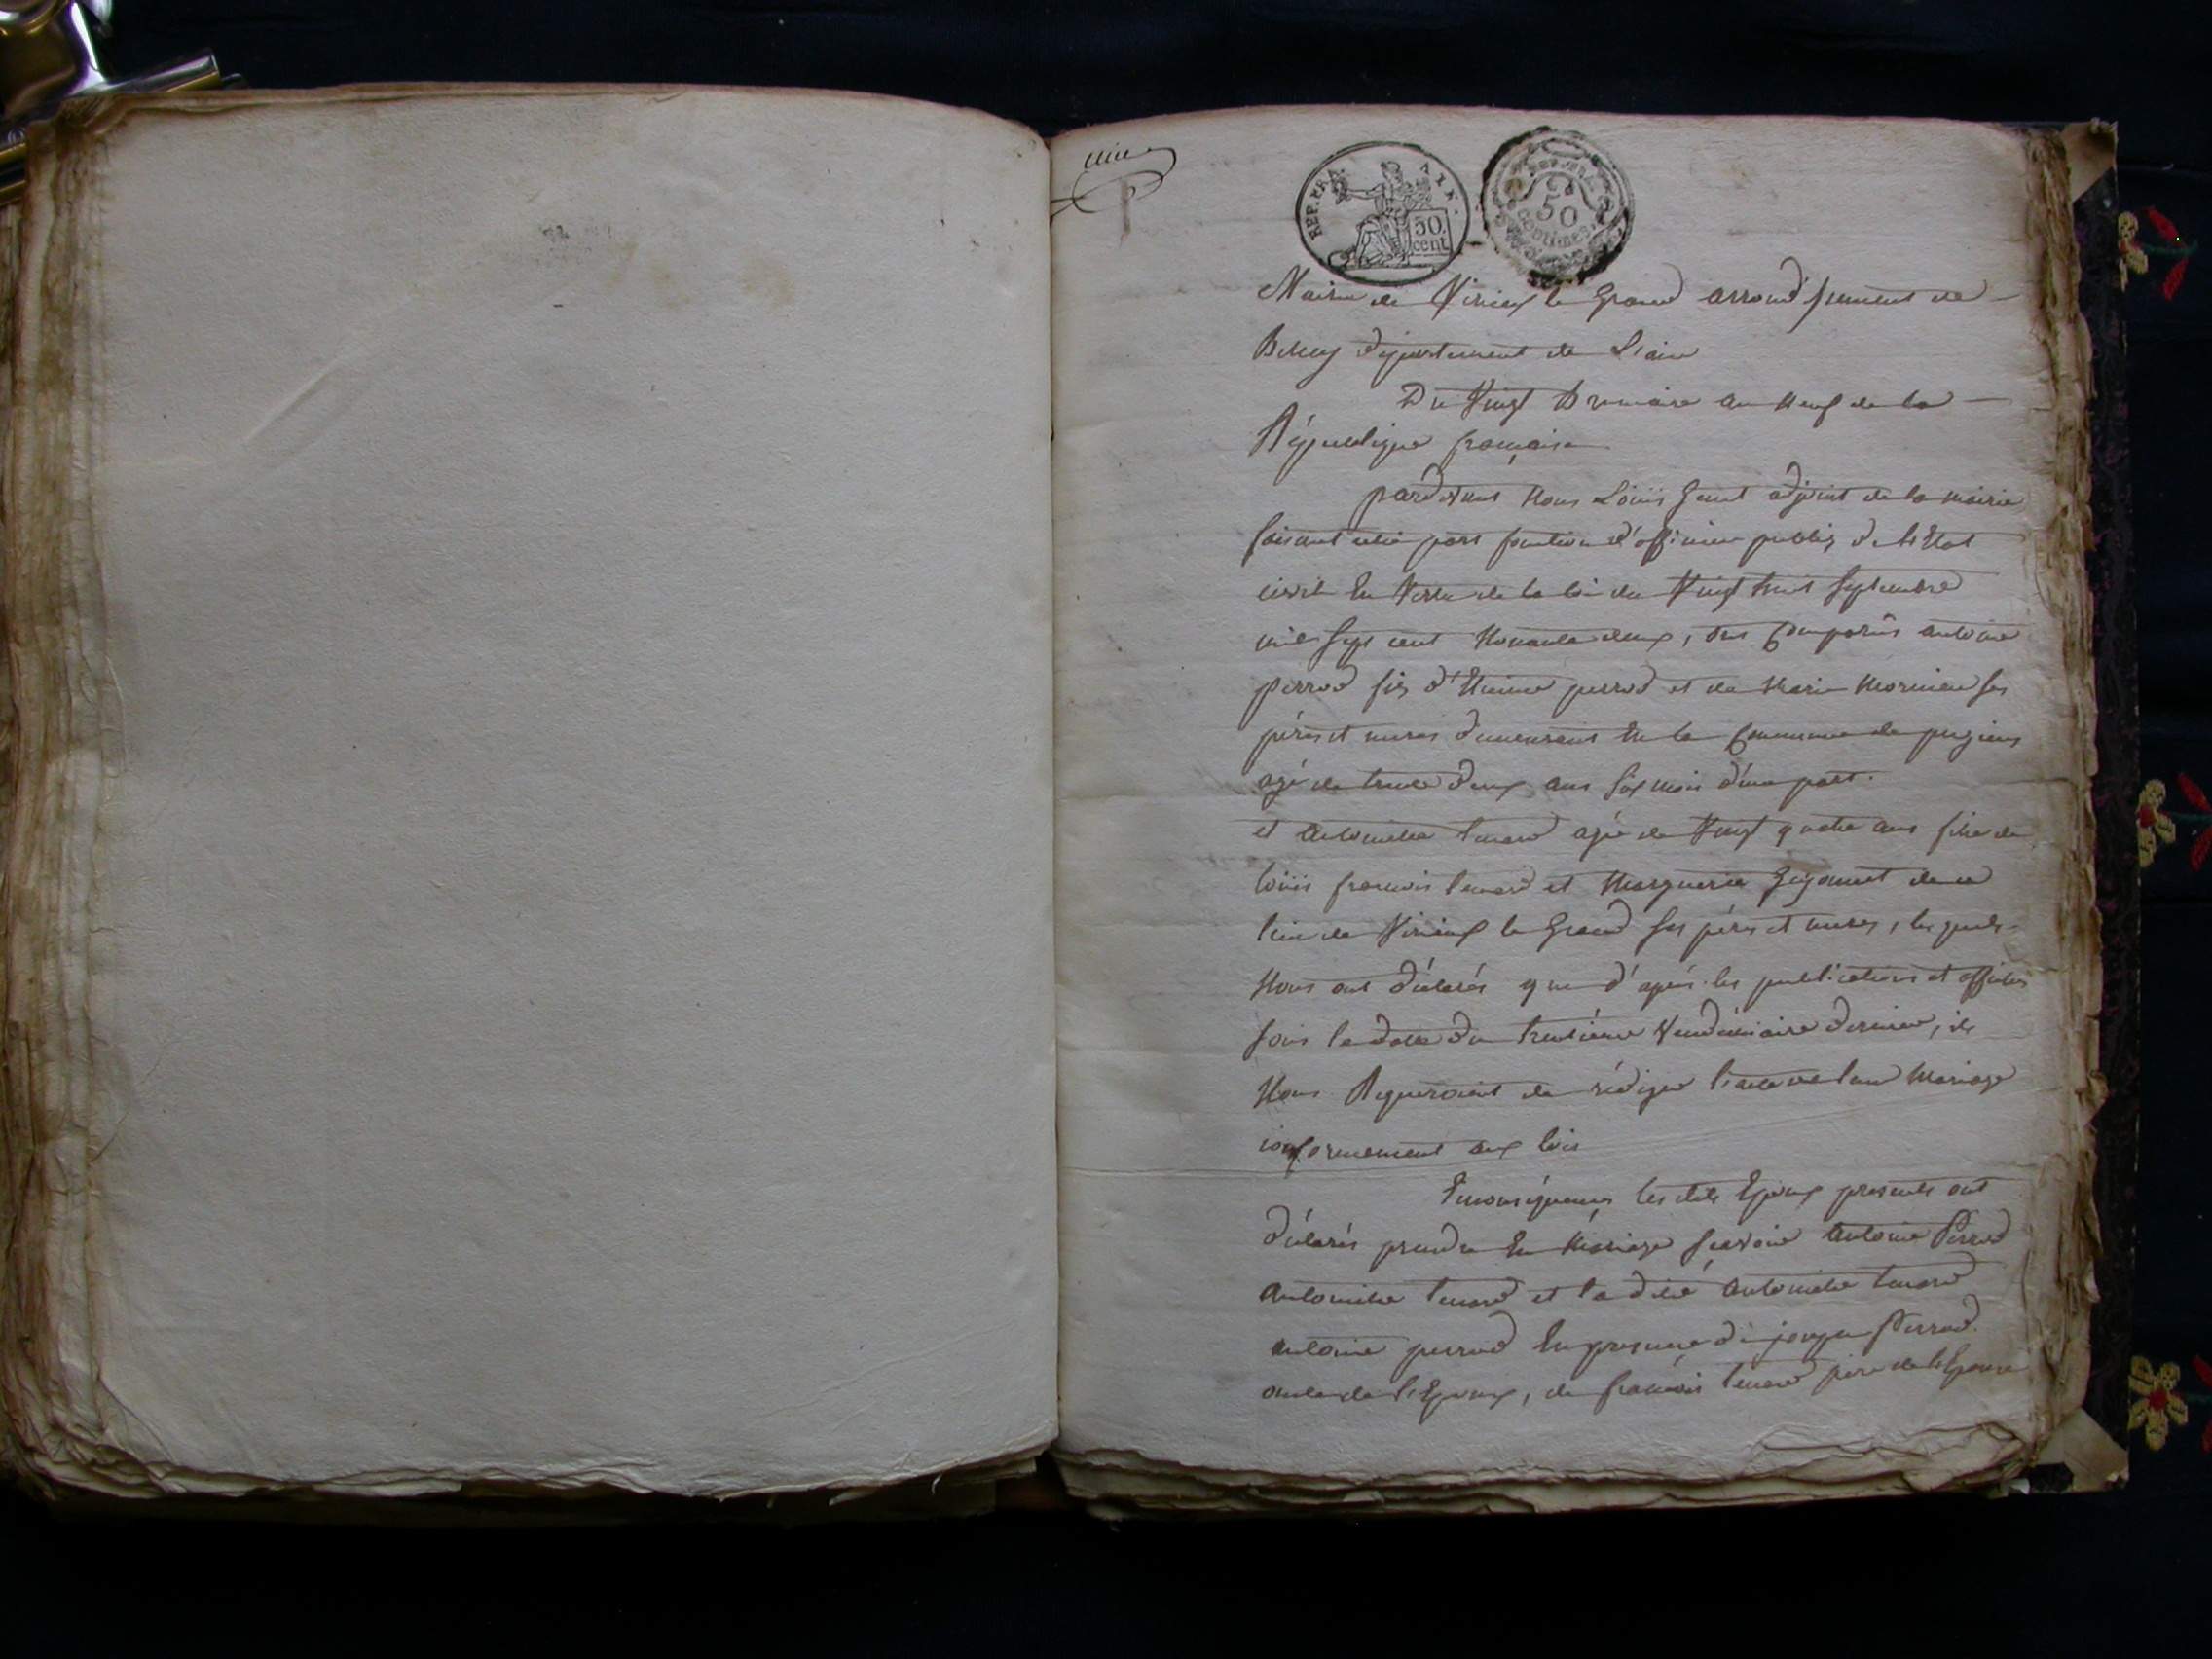 une
REP. FRA. AIN.
50 cent
REP. FRA.
50
centimes
Mairie de Virieux le Grand arrond'ssement de
Belley département de L'ain
Du Vingt Brumaire an neuf de la
République française
pardevant nous Loüis adjoint de la mairie
faisant fonction d'officier public de l'Etat
civil En Vertu de la loi du Vingt Septembre
mil Sept cent Nonante deux, sont Comparûs antoine
perrod fils d'Etienne perrod et de Marie Mornieu Ses
pères et meres demeurant En la Commune de pugieux
agé de trente deux ans Six mois d'une part.
et antoinette tenard agée de Vingt quatre ans fille de
loüis francois tenard et Marguerie Guyonnet de ce
lieu de Virieux le Grand Ses pères et meres, les quels
Nous ont déclarés que d'après les publications et affiches
sous la date du trentième Vendémiaire dernier, ils
Nous Requeroient de rédiger l'acte de leur Mariage
conformement aux lois
Enconséquence les dits Epoux presents ont
déclarés prendre En Mariage Scavoir Antoine Perrod
Antoinette tenard et la dite Antoinette tenard
antoine perrod En presence de joseph Perrod
oncle de l'Epoux, de francois tenard père de l'Epouse